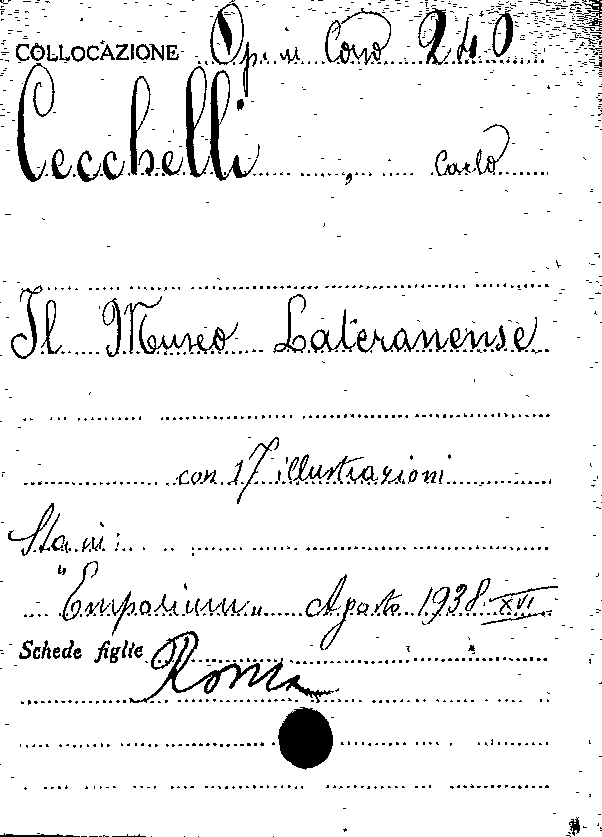 COLLOCAZIONE Op. in Corso 240
Cecchelli, Carlo
Il Museo Lateranense
con 17 illustrazioni
Sta in:
"Emporium" Agosto 1938 XVI
Schede figlie
Roma